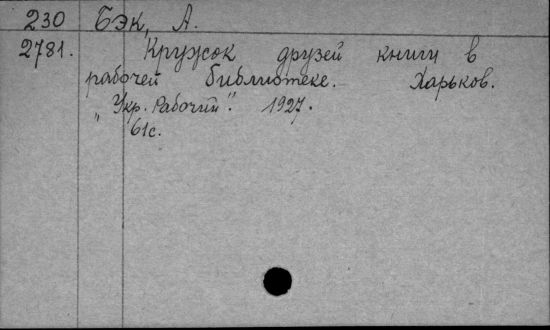 230 Бэк, А.
2781. Кружок друзей книги в
рабочей библиотеке. Харьков.
"Укр. Рабочий". 1927.
61с.